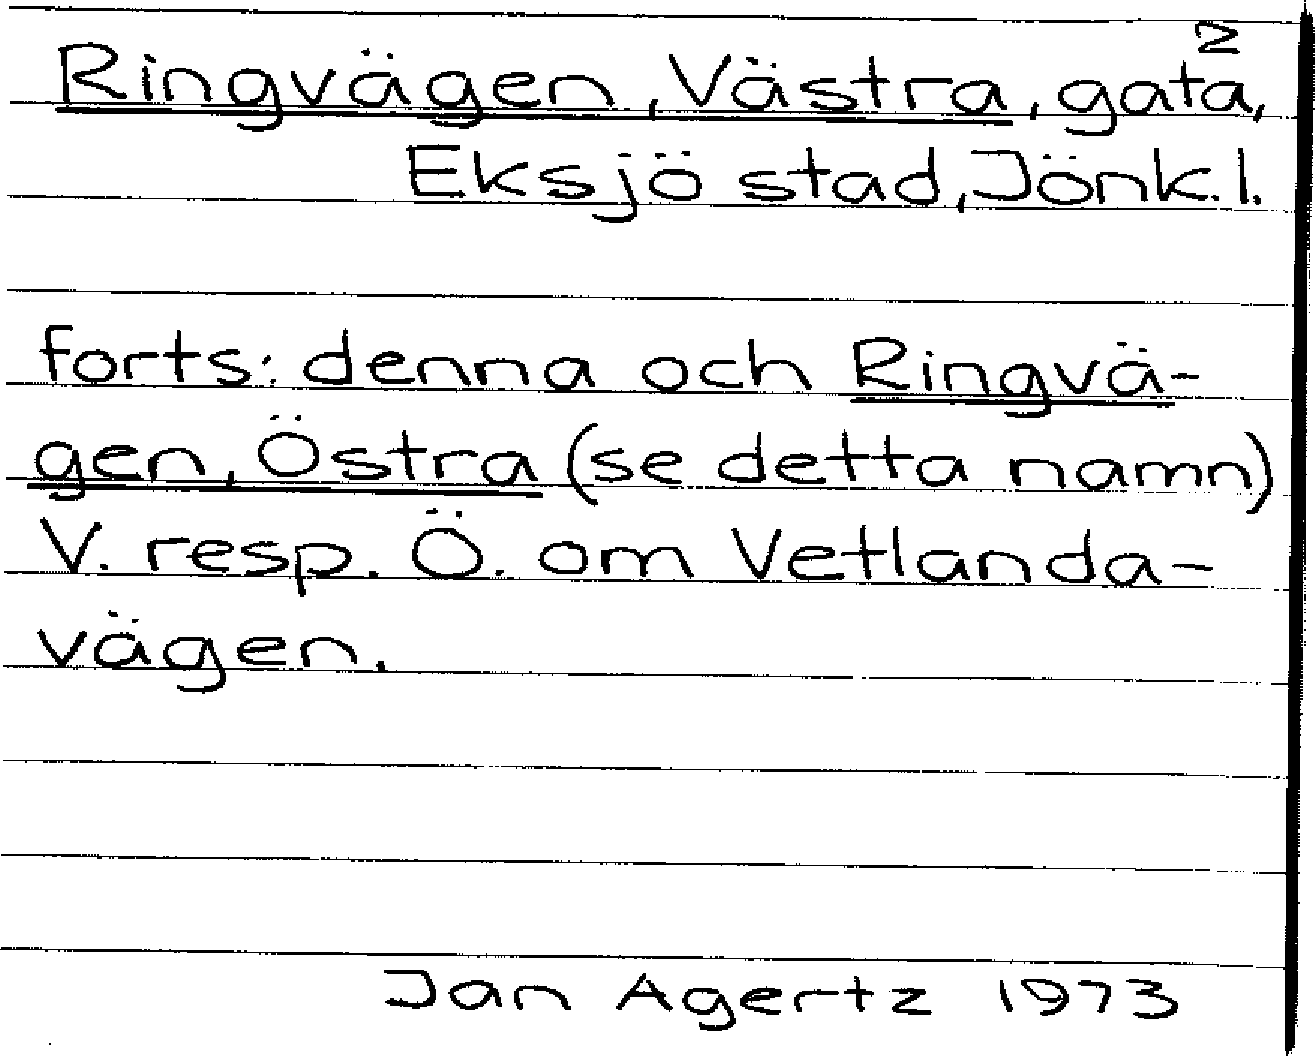 2
Ringvägen, Västra, gata,
Eksjö stad, Jönk.l.
forts: denna och Ringvä-
gen, Östra (se detta namn)
V. resp. Ö. om Vetlanda-
vägen.
Jan Agertz 1973